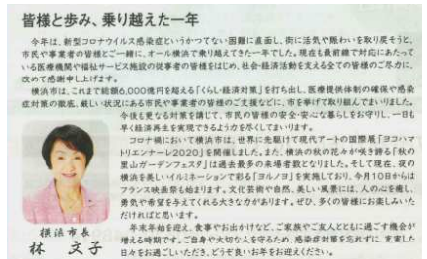 皆様と歩み、乗り越えた一年
今年は、新型コロナウイルス感染症というかつてない困難に直面し、街に活気や賑わいを取り戻そうと、
市民や事業者の皆様とご一緒に、オール横浜で乗り越えてきた一年でした。現在も最前線で対応にあたって
いる医療機関や福祉サービス施設の従事者の皆様をはじめ、社会・経済活動を支える全ての皆様のご尽力に、
改めて感謝申し上げます。
横浜市は、これまで総額6,000億円を超える「くらし・経済対策」を打ち出し、医療提供体制の確保や感染
症対策の徹底、厳しい状況にある市民や事業者の皆様のご支援などに、市を挙げて取り組んでまいりました。
今後も更なる対策を講じて、市民の皆様の安全・安心な暮らしをお守りし、一日も
早く経済再生を実現できるよう力を尽くしてまいります。
コロナ禍において横浜市は、世界に先駆けて現代アートの国際展「ヨコハマ
トリエンナーレ2020」を開催しました。また、横浜の秋の花々が咲き誇る「秋の
里山ガーデンフェスタ」は過去最多の来場者数となりました。そして現在、夜の
横浜を美しいイルミネーションで彩る「ヨルノヨ」を実施しており、今月10日からは
フランス映画祭も始まります。文化芸術や自然、美しい風景には、人の心を癒し、
勇気や希望を与えてくれる大きな力があります。ぜひ、多くの皆様にお楽しみいた
だければと思います。
年末年始を迎え、食事やお出かけなど、ご家族やご友人とともに過ごす機会が
増える時期です。ご自身や大切な人を守るため、感染症対策を忘れずに、充実した
日々をお過ごしいただき、どうぞ良いお年をお迎えください。
横浜市長
林 文子